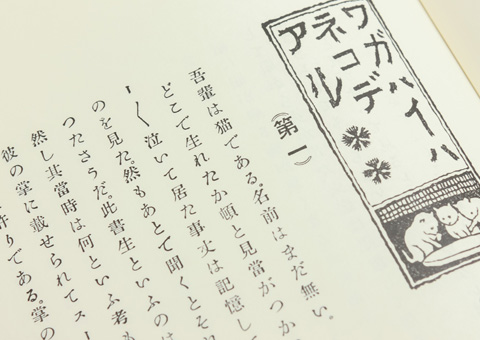 ワガハイハ
ネコデ
アル
(第一)
吾輩は猫である。名前はまだ無い。
どこで生れたか頓と見當がつか
ー〱泣いて居た事丈は記憶し
のを見た。然もあとで聞くとそ
つたさうだ。此書生といふのは
然し其當時は何といふ考も
彼の掌に載せられてスー
りである。掌の